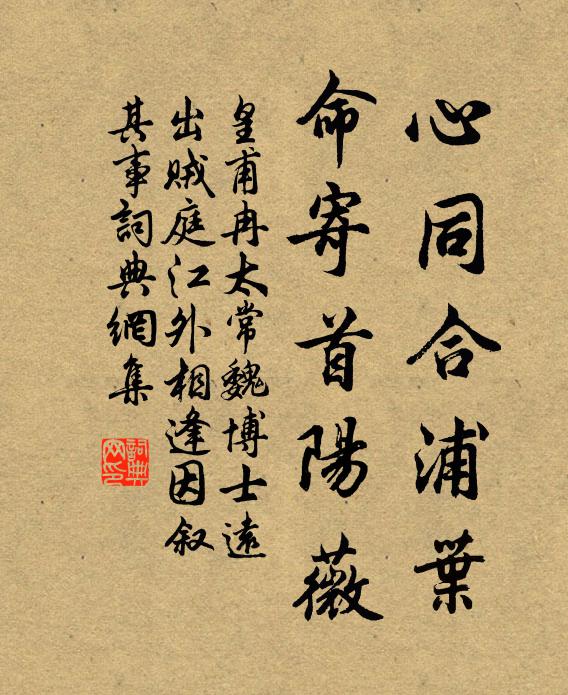 心同合浦葉
命寄首陽薇
皇甫冉太常魏博士遠
出賊庭江外相逢因叙
其事詞典網集
詞典
网印